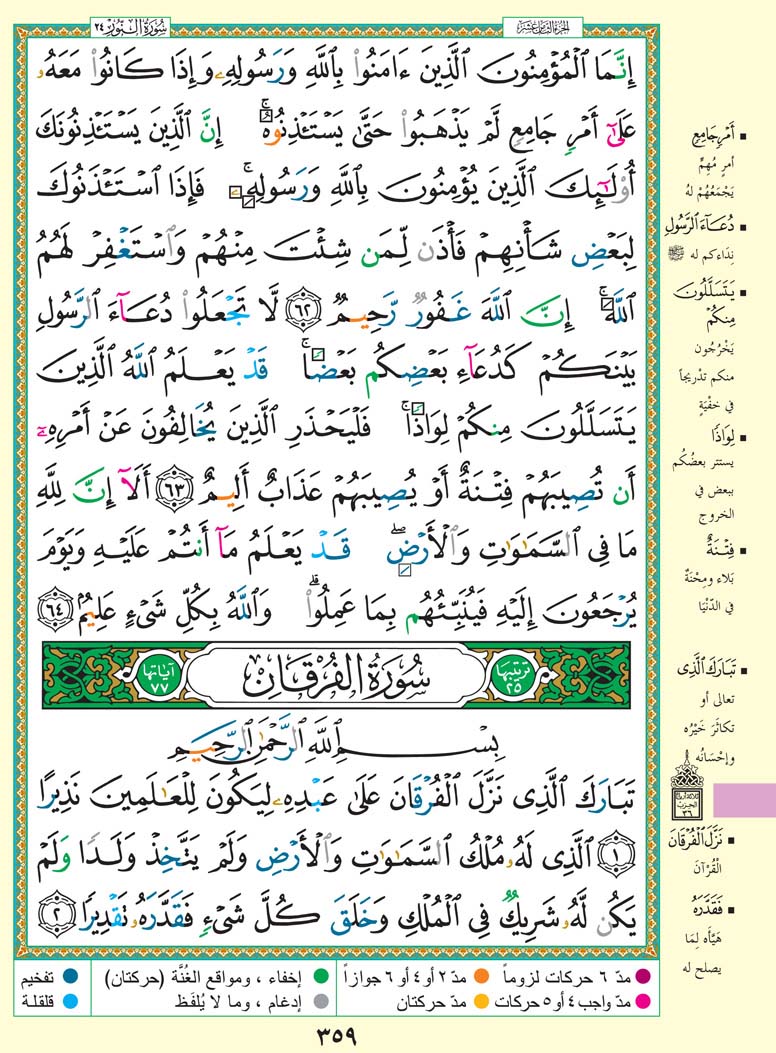 الجزء الثامن عشر
سُورَةُ النُّورِ ٢٤
إِنَّمَا الْمُؤْمِنُونَ الَّذِينَ ءَامَنُوا بِاللَّهِ وَرَسُولِهِ وَإِذَا كَانُوا مَعَهُ
عَلَىٰ أَمْرٍ جَامِعٍ لَّمْ يَذْهَبُوا حَتَّىٰ يَسْتَـْٔذِنُوهُ ۚ إِنَّ الَّذِينَ يَسْتَـْٔذِنُونَكَ
أُوْلَٰٓئِكَ الَّذِينَ يُؤْمِنُونَ بِاللَّهِ وَرَسُولِهِ ۚ فَإِذَا اسْتَـْٔذَنُوكَ
لِبَعْضِ شَأْنِهِمْ فَأْذَن لِّمَن شِئْتَ مِنْهُمْ وَاسْتَغْفِرْ لَهُمُ
اللَّهَ ۚ إِنَّ اللَّهَ غَفُورٌ رَّحِيمٌ ٦٢ لَّا تَجْعَلُوا دُعَآءَ الرَّسُولِ
بَيْنَكُمْ كَدُعَآءِ بَعْضِكُم بَعْضًا ۚ قَدْ يَعْلَمُ اللَّهُ الَّذِينَ
يَتَسَلَّلُونَ مِنكُمْ لِوَاذًا ۚ فَلْيَحْذَرِ الَّذِينَ يُخَالِفُونَ عَنْ أَمْرِهِٓ
أَن تُصِيبَهُمْ فِتْنَةٌ أَوْ يُصِيبَهُمْ عَذَابٌ أَلِيمٌ ٦٣ أَلَآ إِنَّ لِلَّهِ
مَا فِي السَّمَٰوَٰتِ وَالْأَرْضِ ۖ قَدْ يَعْلَمُ مَآ أَنتُمْ عَلَيْهِ وَيَوْمَ
يُرْجَعُونَ إِلَيْهِ فَيُنَبِّئُهُم بِمَا عَمِلُوا ۗ وَاللَّهُ بِكُلِّ شَيْءٍ عَلِيمٌ ٦٤
ترتيبها ٢٥ سُورَةُ الْفُرْقَانِ آياتها ٧٧
بِسْمِ اللَّهِ الرَّحْمَٰنِ الرَّحِيمِ
تَبَارَكَ الَّذِي نَزَّلَ الْفُرْقَانَ عَلَىٰ عَبْدِهِ لِيَكُونَ لِلْعَٰلَمِينَ نَذِيرًا
١ الَّذِي لَهُ مُلْكُ السَّمَٰوَٰتِ وَالْأَرْضِ وَلَمْ يَتَّخِذْ وَلَدًا وَلَمْ
يَكُن لَّهُ شَرِيكٌ فِي الْمُلْكِ وَخَلَقَ كُلَّ شَيْءٍ فَقَدَّرَهُ تَقْدِيرًا ٢
أَمْرٍ جَامِعٍ
أمرٍ مُهِمٍّ
يَجْمَعُهُمْ لَهُ
دُعَآءَ الرَّسُولِ
نِدَاءَكم له ﷺ
يَتَسَلَّلُونَ
مِنكُمْ
يَخْرُجُون
منكم تدْريجاً
في خفْيَةٍ
لِوَاذًا
يستتر بعضُكُم
ببعض في
الخروج
فِتْنَةٌ
بَلاء ومِحْنَةٌ
في الدّنْيَا
تَبَارَكَ الَّذِي
تعالى أو
تكاثَرَ خَيْرُه
وإحْسَانُه
نَزَّلَ الْفُرْقَانَ
القُرْآنَ
فَقَدَّرَهُ
هَيَّأه لِمَا
يصلح له
مدّ ٦ حركات لزوماً مدّ ٢ أو ٤ أو ٦ جوازاً إخفاء ، ومواقع الغُنَّة (حركتان) تفخيم
مدّ واجب ٤ أو ٥ حركات مدّ حركتان إدغام ، وما لا يُلفَظ قلقلة
٣٥٩